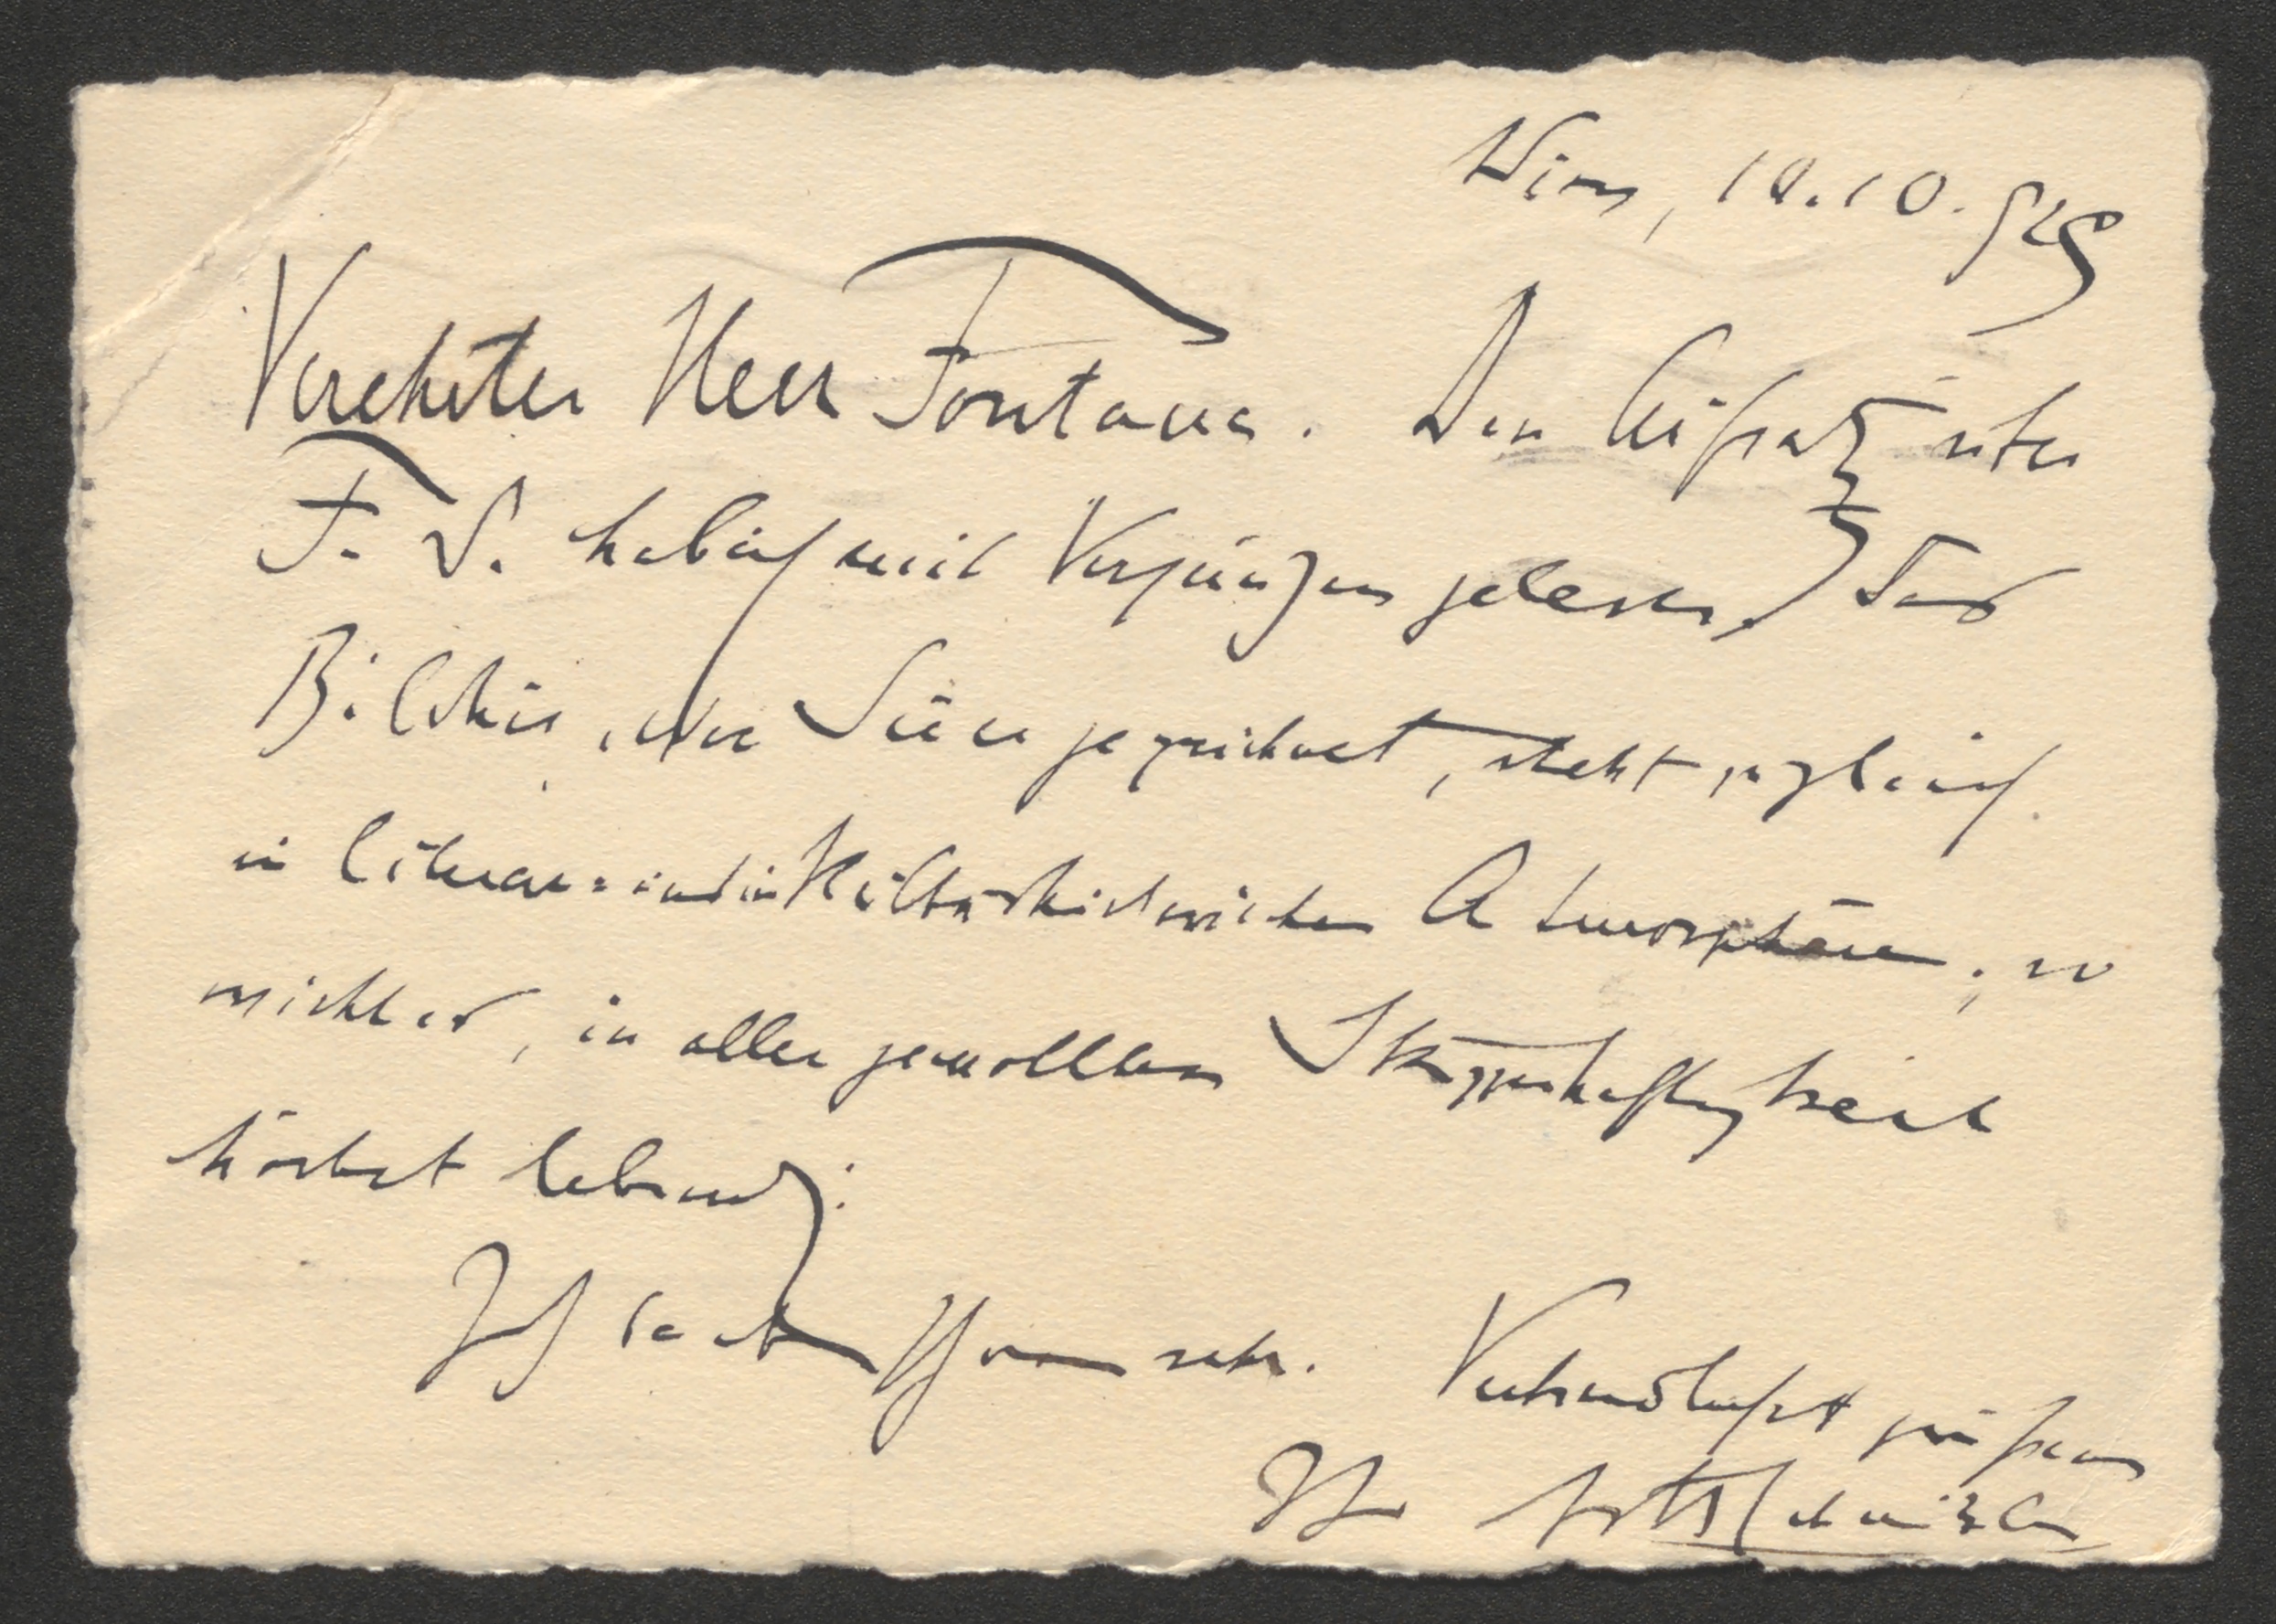 Wien, 10. 10. 928
Verehrter Herr Fontana. Den Aufsatz über
F. S. habe ich mit Vergnügen gelesen; das
Bildnis, das Sie gezeichnet, steht zugleich
in literar= und in kulturhistorischer Atmosphäre; so
wirkt es, in aller gewollten Skizzenhaftigkeit
höchst lebendig.
Ich danke Ihnen sehr. Verbindlichst grüßend
Ihr ArthSchnitzler